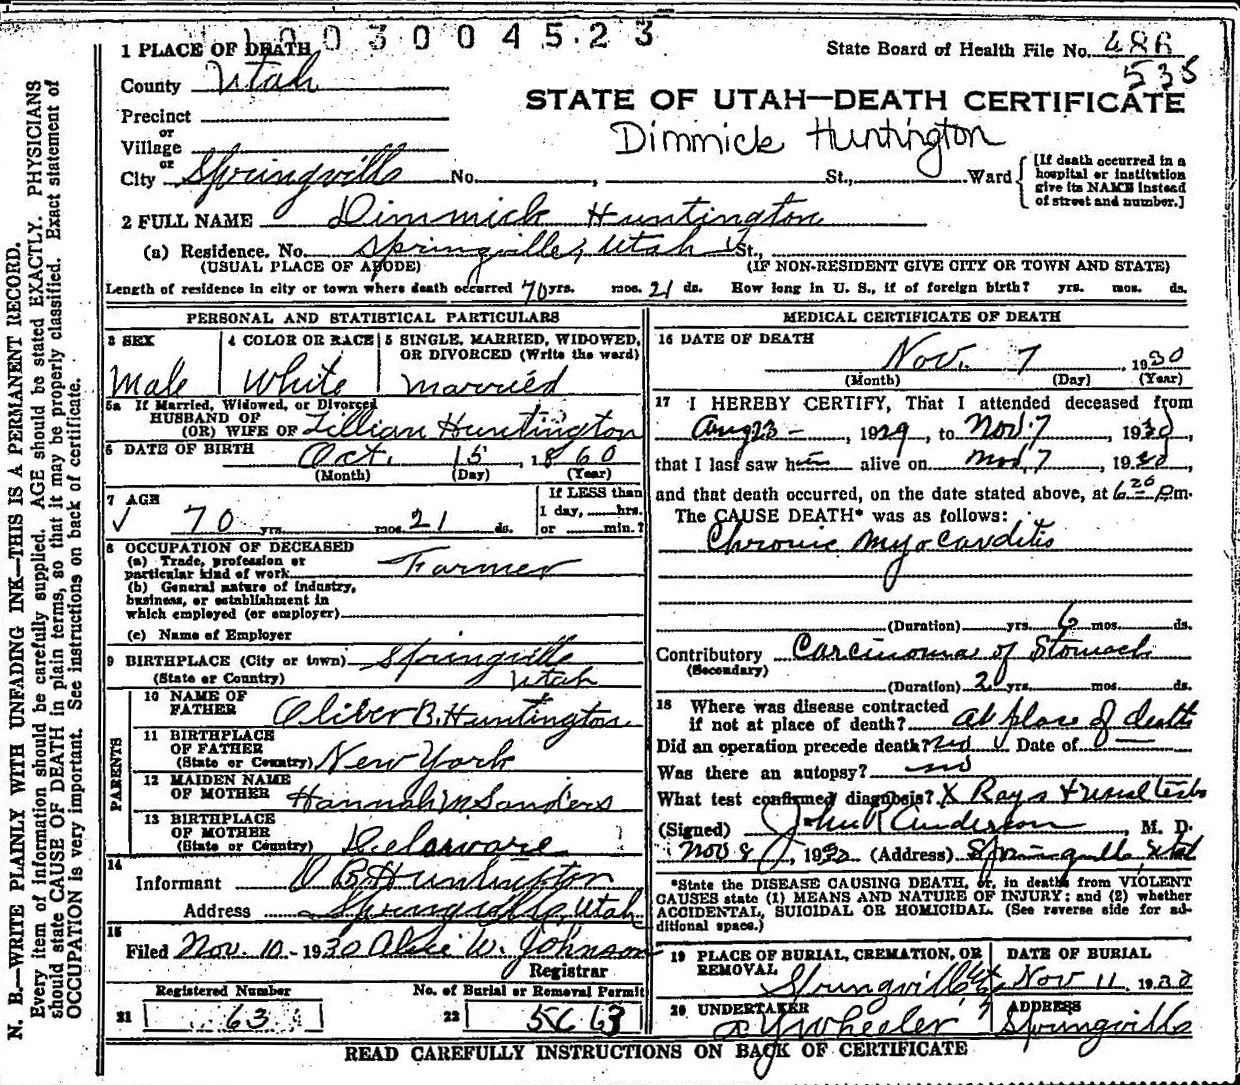 1 0 0 3 0 0 4 5 2 3
1 PLACE OF DEATH
State Board of Health File No. 486
535
County Utah
STATE OF UTAH—DEATH CERTIFICATE
Precinct
Dimmick Huntington
or
Village
or
City Springville No. , St., Ward
[If death occurred in a
hospital or institution
give its NAME instead
of street and number.]
2 FULL NAME Dimmick Huntington
(a) Residence. No. Springville, Utah St.,
(USUAL PLACE OF ABODE) (IF NON-RESIDENT GIVE CITY OR TOWN AND STATE)
Length of residence in city or town where death occurred 70 yrs. mos. 21 ds. How long in U. S., if of foreign birth? yrs. mos. ds.
PERSONAL AND STATISTICAL PARTICULARS
3 SEX 4 COLOR OR RACE 5 SINGLE, MARRIED, WIDOWED,
OR DIVORCED (Write the word)
Male White married
5a If Married, Widowed, or Divorced
HUSBAND OF
(OR) WIFE OF Lillian Huntington
6 DATE OF BIRTH Oct. 15, 1860
(Month) (Day) (Year)
7 AGE
70 yrs. mos. 21 ds.
If LESS than
1 day, hrs.
or min.?
8 OCCUPATION OF DECEASED
(a) Trade, profession or
particular kind of work Farmer
(b) General nature of industry,
business, or establishment in
which employed (or employer)
(c) Name of Employer
9 BIRTHPLACE (City or town) Springville
(State or Country) Utah
PARENTS
10 NAME OF
FATHER Oliver B. Huntington
11 BIRTHPLACE
OF FATHER
(State or Country) New York
12 MAIDEN NAME
OF MOTHER Hannah M Sanders
13 BIRTHPLACE
OF MOTHER
(State or Country) Delaware
14
Informant O B Huntington
Address Springville, Utah
15
Filed Nov. 10 - 1930 Alice W. Johnson
Registrar
Registered Number No. of Burial or Removal Permit
21 63 22 5663
MEDICAL CERTIFICATE OF DEATH
16 DATE OF DEATH
Nov. 7, 1930
(Month) (Day) (Year)
17 I HEREBY CERTIFY, That I attended deceased from
Aug 23 -, 1929, to Nov. 7, 1930,
that I last saw him alive on Nov. 7, 1930,
and that death occurred, on the date stated above, at 6 20 p.m.
The CAUSE DEATH* was as follows:
Chronic Myocarditis
(Duration) yrs. 6 mos. ds.
Contributory Carcinoma of Stomach
(Secondary)
(Duration) 2 yrs. mos. ds.
18 Where was disease contracted
if not at place of death? at place of death
Did an operation precede death? no Date of —
Was there an autopsy? no
What test confirmed diagnosis? X Rays & usual tests
(Signed) John R Anderson, M. D.
Nov 8, 1930 (Address) Springville, Utah
*State the DISEASE CAUSING DEATH, or, in deaths from VIOLENT
CAUSES state (1) MEANS AND NATURE OF INJURY: and (2) whether
ACCIDENTAL, SUICIDAL OR HOMICIDAL. (See reverse side for ad-
ditional space.)
19 PLACE OF BURIAL, CREMATION, OR
REMOVAL
Springville
DATE OF BURIAL
Nov 11, 1930
20 UNDERTAKER
A Y Wheeler
ADDRESS
Springville
READ CAREFULLY INSTRUCTIONS ON BACK OF CERTIFICATE
N. B.—WRITE PLAINLY WITH UNFADING INK—THIS IS A PERMANENT RECORD.
Every item of information should be carefully supplied. AGE should be stated EXACTLY. PHYSICIANS
should state CAUSE OF DEATH in plain terms, so that it may be properly classified. Exact statement of
OCCUPATION is very important. See instructions on back of certificate.